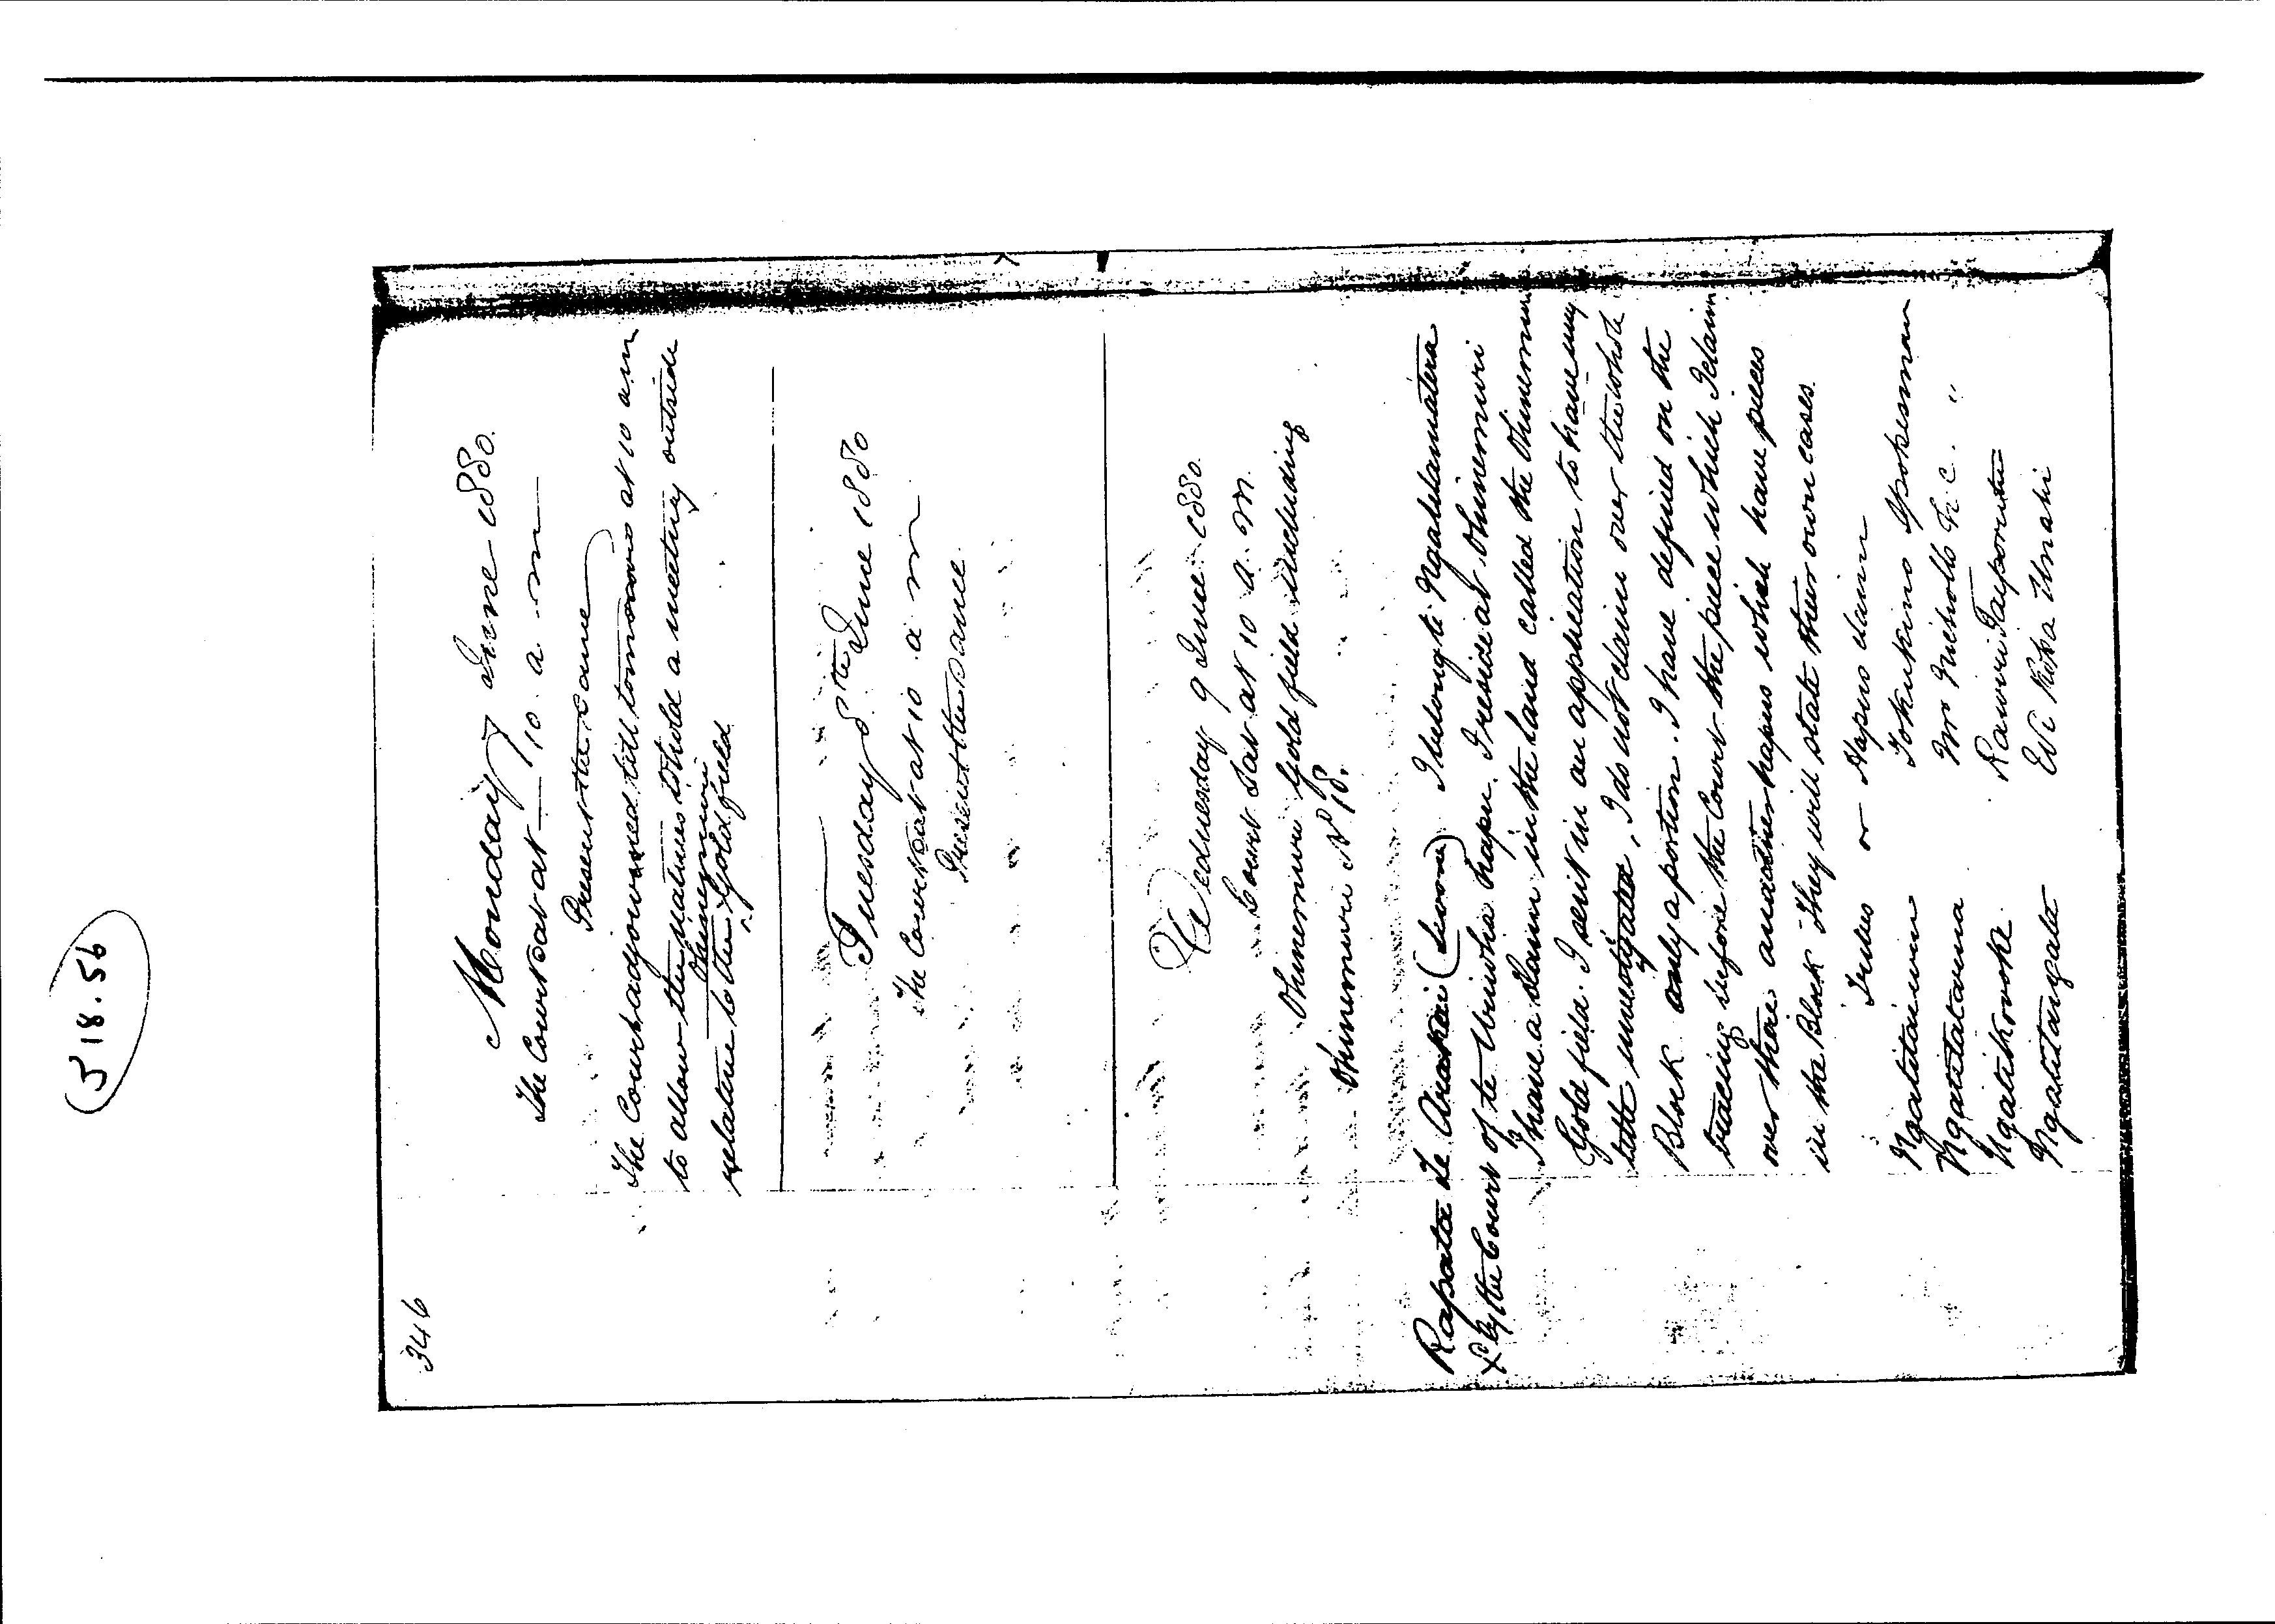 J18.56
346
Monday June 1880.
The Court sat at 10 a.m
Present the same
The Court adjourned till tomorrow at 10 am
to allow the natives to hold a meeting outside
relative to the Ohinemuri Gold field
Tuesday 8th June 1880
The Court sat at 10 a m
Present the same.
Wednesday 9 June 1880.
Court Sat at 10 A.M.
Ohinemuri Gold field including
Ohinemuri No 18.
Rapata te Arakai (sworn) I belong to Ngatitamatera
& by the Court of te Uriwha hapu. I reside at Ohinemuri
I have a claim in the land called the Ohinemuri
Gold field. I sent in an application to have my
title investigated, I do not claim over the whole
Block only a portion. I have defined on the
tracing before the Court the piece which I claim
over there and other hapus which have pieces
in the Block They will state their own cases.
Tribes or Hapus claim
Ngatitaiuru Tokukino Spokesman
Ngatitatauna Mr Nicholls H.C. "
Ngatikoroki Rawiri Taiporutu
Ngatitangata Eth Kuka Unahi